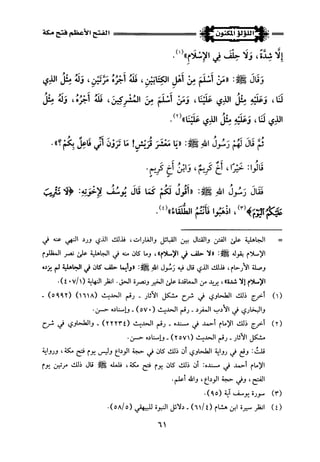 الفتح الأعظم فتح مكة
اللؤلؤ المكنون
إِلَّا شِدَّةً، وَلَا حِلْفَ فِي الإِسْلَامِ»(١).
وَقَالَ ﷺ: «مَنْ أَسْلَمَ مِنْ أَهْلِ الكِتَابَيْنِ، فَلَهُ أَجْرُهُ مَرَّتَيْنِ، وَلَهُ مِثْلُ الذِي
لَنَا، وَعَلَيْهِ مِثْلُ الذِي عَلَيْنَا، وَمَنْ أَسْلَمَ مِنَ المُشْرِكِينَ، فَلَهُ أَجْرُهُ، وَلَهُ مِثْلُ
الذِي لَنَا، وَعَلَيْهِ مِثْلُ الذِي عَلَيْنَا»(٢).
ثُمَّ قَالَ لَهُمْ رَسُولُ اللهِ ﷺ: «يَا مَعْشَرَ قُرَيْشٍ! مَا تَرَوْنَ أَنِّي فَاعِلٌ بِكُمْ؟».
قَالُوا: خَيْرًا، أَخٌ كَرِيمٌ، وَابْنُ أَخٍ كَرِيمٍ.
فَقَالَ رَسُولُ اللهِ ﷺ: «أَقُولُ لَكُمْ كَمَا قَالَ يُوسُفُ لِإِخْوَتِهِ: ﴿لَا تَثْرِيبَ
عَلَيْكُمُ الْيَوْمَ﴾(٣)، اذْهَبُوا فَأَنْتُمُ الطُّلَقَاءُ»(٤).
= الجاهلية على الفتن والقتال بين القبائل والغارات، فذلك الذي ورد النهي عنه في
الإسلام بقوله ﷺ: «لا حلف في الإسلام»، وما كان منه في الجاهلية على نصر المظلوم
وصلة الأرحام، فذلك الذي قال فيه رَسُول الله ﷺ: «وأيما حلف كان في الجاهلية لم يزده
الإسلام إلا شدة»، يريد من المعاقدة على الخير ونصرة الحق. انظر النهاية (٤٠٧/١).
(١) أخرج ذلك الطحاوي في شرح مشكل الآثار ـ رقم الحديث (١٦١٨) (٥٩٩٢) ـ
والبخاري في الأدب المفرد ـ رقم الحديث (٥٧٠) ـ وإسناده حسن.
(٢) أخرج ذلك الإمام أحمد في مسنده ـ رقم الحديث (٢٢٢٣٤) ـ والطحاوي في شرح
مشكل الآثار ـ رقم الحديث (٢٥٧١) ـ وإسناده حسن.
قلتُ: وقع في رواية الطحاوي أن ذلك كان في حجة الوداع وليس يوم فتح مكة، ورواية
الإمام أحمد في مسنده: أن ذلك كان يوم فتح مكة، فلعله ﷺ قال ذلك مرتين يوم
الفتح، وفي حجة الوداع، والله أعلم.
(٣) سورة يوسف آية (٩٥).
(٤) انظر سيرة ابن هشام (٦١/٤) ـ دلائل النبوة للبيهقي (٥٨/٥).
٦١